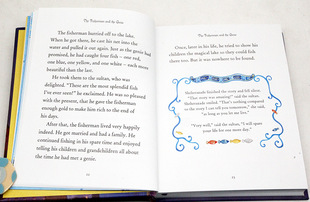 The Fisherman and the Genie
The fisherman hurried off to the lake.
When he got there, he cast his net into the
water and pulled it out again. Just as the genie had
promised, he had caught four fish – one red,
one blue, one yellow, and one white – each more
beautiful than the last.
He took them to the sultan, who was
delighted. "These are the most splendid fish
I've ever seen!" he exclaimed. He was so pleased
with the present, that he gave the fisherman
enough gold to make him rich to the end of
his days.
After that, the fisherman lived very happily
indeed. He got married and had a family. He
continued fishing in his spare time and enjoyed
telling his children and grandchildren all about
the time he had met a genie.
The Fisherman and the Genie
Once, later in his life, he tried to show his
children the magical lake so they could fish
there too. But it was nowhere to be found.
Shaherazade finished the story and fell silent.
"That story was amazing!" said the sultan.
Shaherazade smiled. "That's nothing compared
to the story I can tell you tomorrow," she said,
"as long as you let me live."
"Very well," said the sultan, "I will spare
your life for one more day."